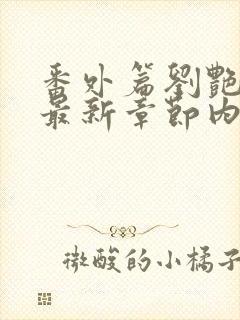 番外篇劉艷
最新章節內
微酸的小橘子